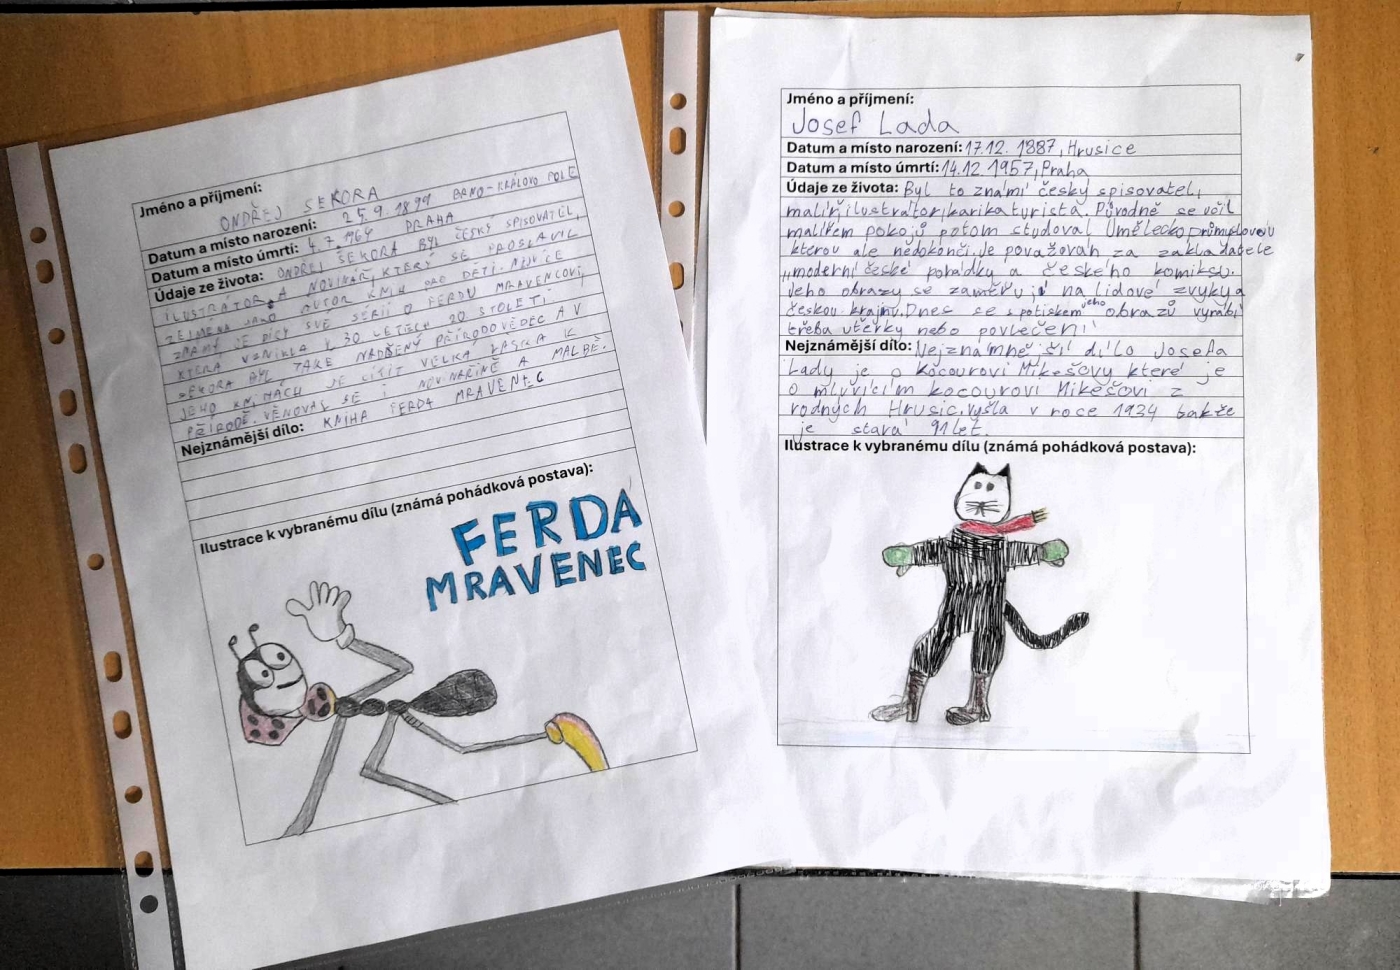 Jméno a příjmení:
ONDŘEJ SEKORA
Datum a místo narození: 25.9. 1899 BRNO-KRÁLOVO POLE
Datum a místo úmrtí: 4.7. 1967 PRAHA
Údaje ze života: ONDŘEJ SEKORA BYL ČESKÝ SPISOVATEL,
ILUSTRÁTOR A NOVINÁŘ, KTERÝ SE PROSLAVIL
ZEJMÉNA JAKO AUTOR KNIH PRO DĚTI. NEJVÍCE
ZNÁMÝ JE DÍKY SVÉ SÉRII O FERDU MRAVENCOVI,
KTERÁ VZNIKLA V 30 LETECH 20 STOLETÍ
SEKORA BYL TAKÉ NADŠENÝ PŘÍRODOVĚDEC A V
JEHO KNIHÁCH JE CÍTIT VELKÁ LÁSKA K
PŘÍRODĚ. VĚNOVAL SE I NOVINAŘINĚ A MALBĚ.
Nejznámější dílo: KNIHA FERDA MRAVENEC
Ilustrace k vybranému dílu (známá pohádková postava):
FERDA
MRAVENEC
Jméno a příjmení:
Josef Lada
Datum a místo narození: 17.12. 1887, Hrusice
Datum a místo úmrtí: 14.12 1957, Praha
Údaje ze života: Byl to známí český spisovatel,
malíř, ilustrátor, karikaturista. Původně se učil
malířem pokojů potom studoval Uměleckoprůmyslovou
kterou ale nedokončil. Je považován za zakladatele
moderní české pohádky a českeho komiksu.
Jeho obrazy se zaměřují na lidové zvyky a
českou krajinu. Dnes se s potiskem jeho obrazů vyrábí
třeba utěrky nebo povlečení
Nejznámější dílo: Nejznámně ší dílo Josefa
Lady je o Kocourovi Mikešovy které je
o mluvícím kocourovi Mikešovi z
rodných Hrusic. vyšla v roce 1934 takže
je stará 91 let.
Ilustrace k vybranému dílu (známá pohádková postava):